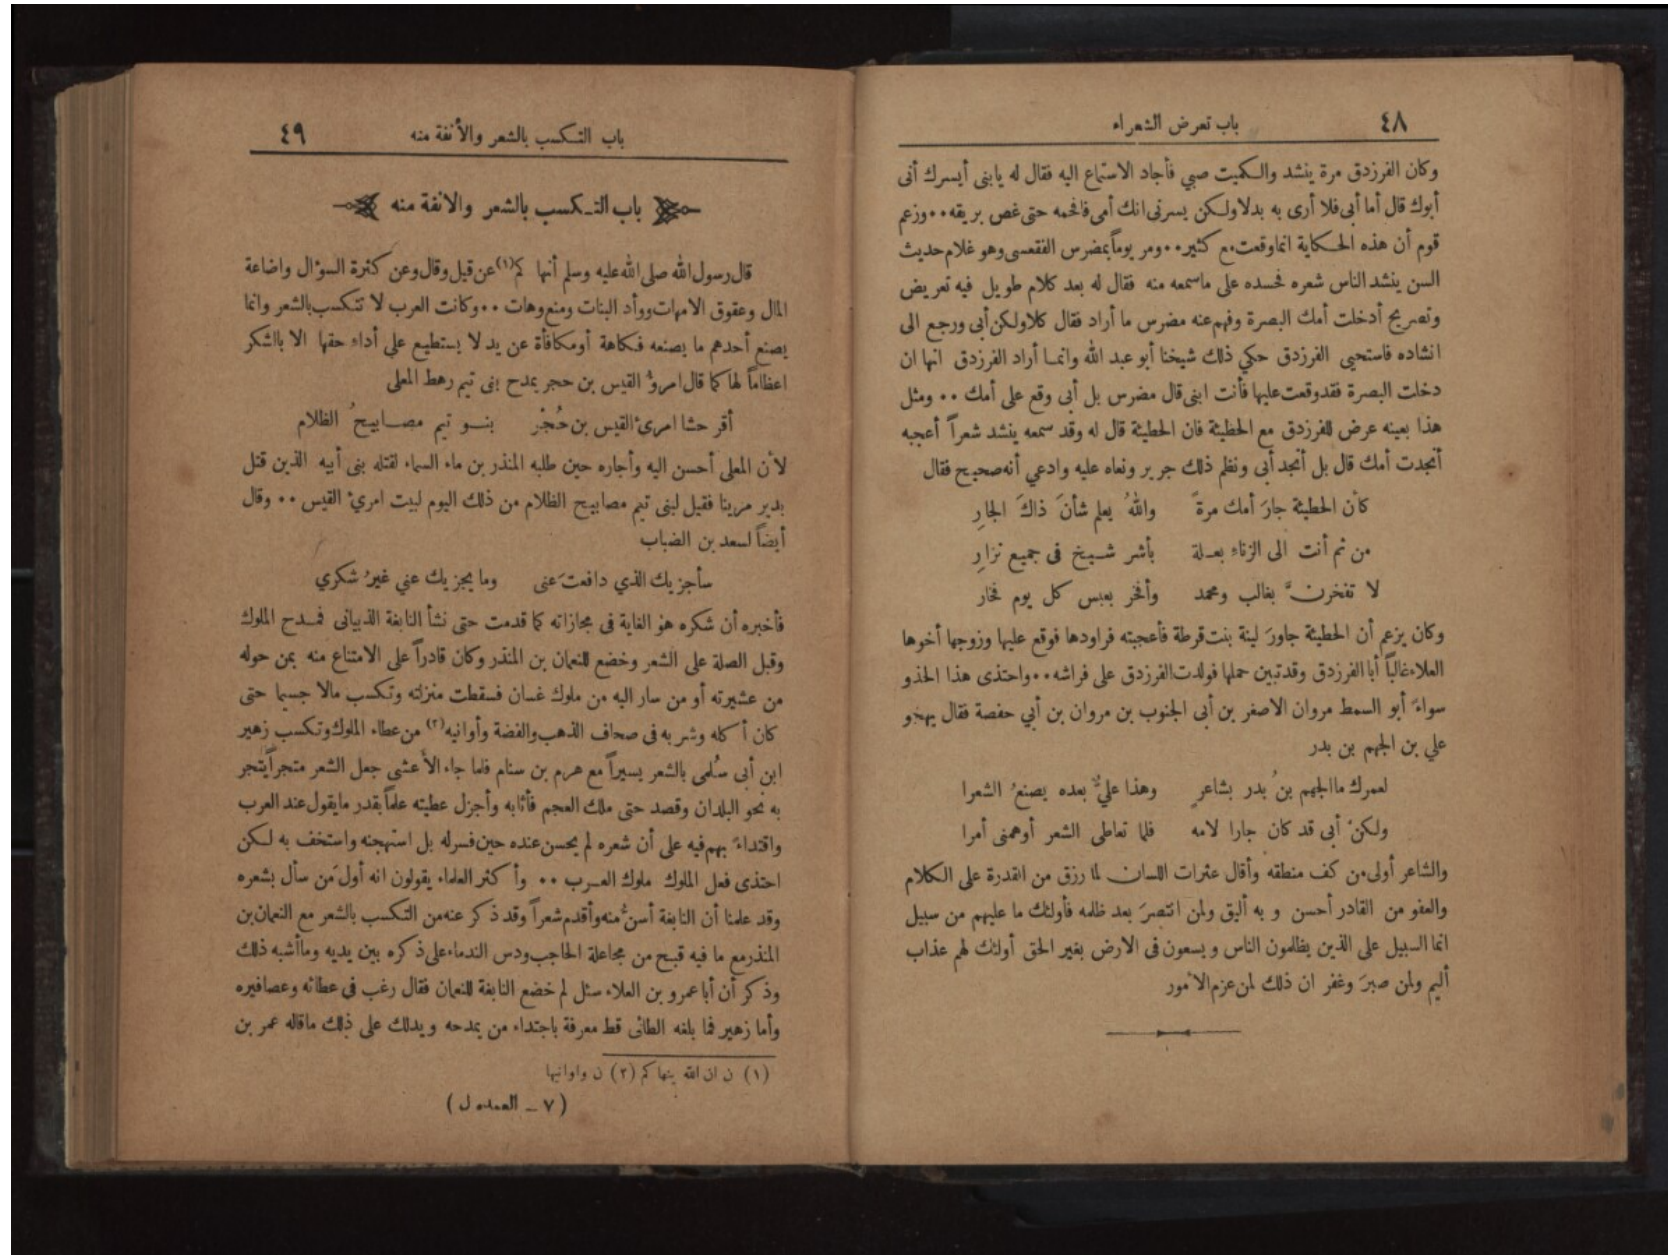 ٤٨
باب تعرض الشعراء
وكان الفرزدق مرة ينشد والكميت صبي فأجاد الاستماع اليه فقال له يابنى أيسرك أنى
أبوك قال أما أبى فلا أرى به بدلا ولكن يسرنى انك أمى فافحمه حتى غص بريقه ٠٠ وزعم
قوم أن هذه الحكاية انما وقعت مع كثير ٠٠ ومر يوماً بمضرس الفقعسى وهو غلام حديث
السن ينشد الناس شعره فحسده على ما سمعه منه فقال له بعد كلام طويل فيه تعريض
وتصريح أدخلت أمك البصرة وفهم عنه مضرس ما أراد فقال كلا ولكن أبى ورجع الى
انشاده فاستحيى الفرزدق حكي ذلك شيخنا أبو عبد الله وانما أراد الفرزدق انها ان
دخلت البصرة فقد وقعت عليها فأنت ابنى قال مضرس بل أبى وقع على أمك ٠٠ ومثل
هذا بعينه عرض للفرزدق مع الحطيئة فان الحطيئة قال له وقد سمعه ينشد شعراً أعجبه
أنجدت أمك قال بل أنجد أبى ونظم ذلك جرير ونعاه عليه وادعي أنه صحيح فقال
كان الحطيئة جارَ أمك مرةً واللهُ يعلم شأنَ ذاكَ الجارِ
من ثم أنت الى الزناءِ بعلة بأشر شيخ فى جميع نزارِ
لا تفخرنَّ بغالب ومحمد وأفخر بعبس كل يوم فخار
وكان يزعم أن الحطيئة جاورَ لينة بنت قرطة فأعجبته فراودها فوقع عليها وزوجها أخوها
العلاء غالباً أبا الفرزدق وقد تبين حملها فولدت الفرزدق على فراشه ٠٠ واحتذى هذا الحذو
سواءً أبو السمط مروان الاصغر بن أبى الجنوب بن مروان بن أبي حفصة فقال يهجو
علي بن الجهم بن بدر
لعمرك ما الجهم بنُ بدر بشاعرٍ وهذا عليٌّ بعده يصنعُ الشعرا
ولكنْ أبى قد كان جارا لامه فلما تعاطى الشعر أوهمنى أمرا
والشاعر أولى من كف منطقه وأقال عثرات اللسان لما رزق من القدرة على الكلام
والعفو من القادر أحسن و به أليق ولمن انتصرَ بعد ظلمه فأولئك ما عليهم من سبيل
انما السبيل على الذين يظلمون الناس و يسعون فى الارض بغير الحق أولئك لهم عذاب
أليم ولمن صبرَ وغفر ان ذلك لمن عزم الأمور
باب التكسب بالشعر والأنفة منه
٤٩
باب التكسب بالشعر والانفة منه
قال رسول الله صلى الله عليه وسلم أنها كم (١) عن قيل وقال وعن كثرة السؤال واضاعة
المال وعقوق الامهات ووأد البنات ومنع وهات ٠٠ وكانت العرب لا تتكسب بالشعر وانما
يصنع أحدهم ما يصنعه فكاهة أو مكافأة عن يد لا يستطيع على أداء حقها الا بالشكر
اعظاماً لها كما قال امرؤُ القيس بن حجر يمدح بنى تيم رهط المعلى
أقر حشا امرئ القيس بن حُجْر بنو تيم مصابيحُ الظلام
لأن المعلى أحسن اليه وأجاره حين طلبه المنذر بن ماء السماء لقتله بنى أبيه الذين قتل
بدير مرينا فقيل لبنى تيم مصابيح الظلام من ذلك اليوم لبيت امرئ القيس ٠٠ وقال
أيضاً لسعد بن الضباب
سأجزيك الذي دافعت عنى وما يجزيك عني غيرُ شكري
فأخبره أن شكره هو الغاية فى مجازاته كما قدمت حتى نشأ النابغة الذبيانى فمدح الملوك
وقبل الصلة على الشعر وخضع للنعمان بن المنذر وكان قادراً على الامتناع منه بمن حوله
من عشيرته أو من سار اليه من ملوك غسان فسقطت منزلته وتكسب مالا جسيما حتى
كان أكله وشربه فى صحاف الذهب والفضة وأوانيه (٢) من عطاء الملوك وتكسب زهير
ابن أبى سلمى بالشعر يسيراً مع هرم بن سنام فلما جاء الأعشى جعل الشعر متجراً يتجر
به نحو البلدان وقصد حتى ملك العجم فأثابه وأجزل عطيته علماً بقدر ما يقول عند العرب
واقتداءً بهم فيه على أن شعره لم يحسن عنده حين فسر له بل استهجنه واستخف به لكن
احتذى فعل الملوك ملوك العرب ٠٠ وأكثر العلماء يقولون انه أول من سأل بشعره
وقد علمنا أن النابغة أسنُّ منه وأقدم شعراً وقد ذكر عنه من التكسب بالشعر مع النعمان بن
المنذر مع ما فيه قبح من مجاعلة الحاجب ودس الندماء على ذكره بين يديه وما أشبه ذلك
وذكر أن أبا عمرو بن العلاء سئل لم خضع النابغة للنعمان فقال رغب فى عطائه وعصافيره
وأما زهير فما بلغه الطائى قط معرفة باجتداء من يمدحه ويدلك على ذلك ما قاله عمر بن
(١) ن ان الله ينها كم (٢) ن واوانيها
(٧ ـ العمده ل)